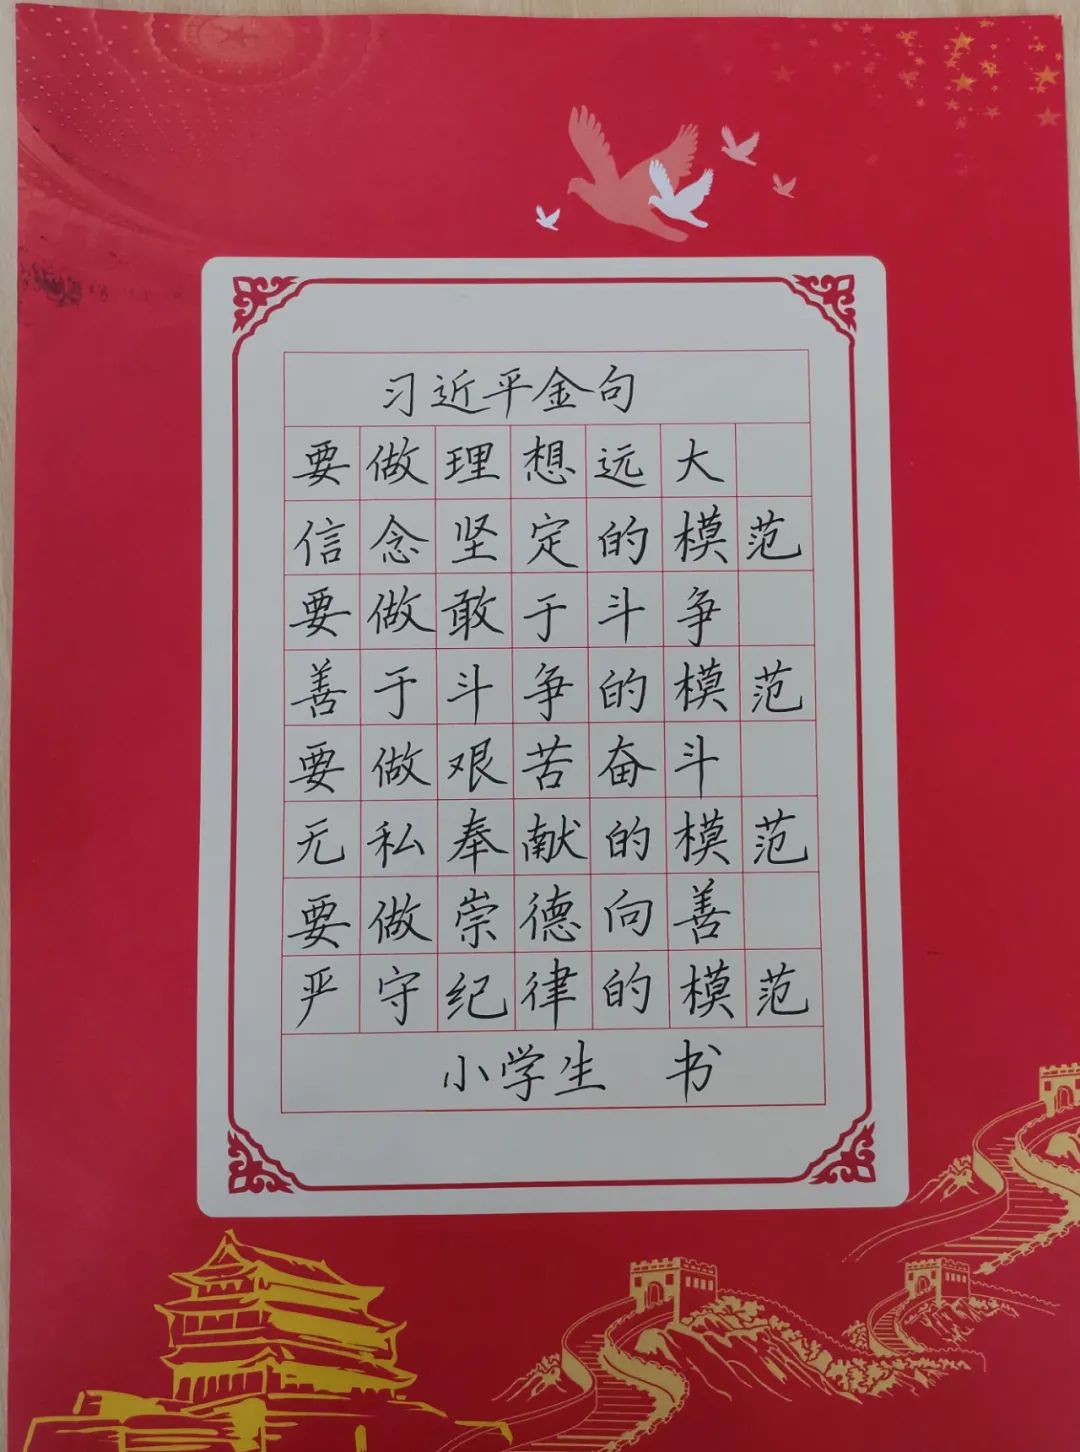 习近平金句
要做理想远大
信念坚定的模范
要做敢于斗争
善于斗争的模范
要做艰苦奋斗
无私奉献的模范
要做崇德向善
严守纪律的模范
小学生 书